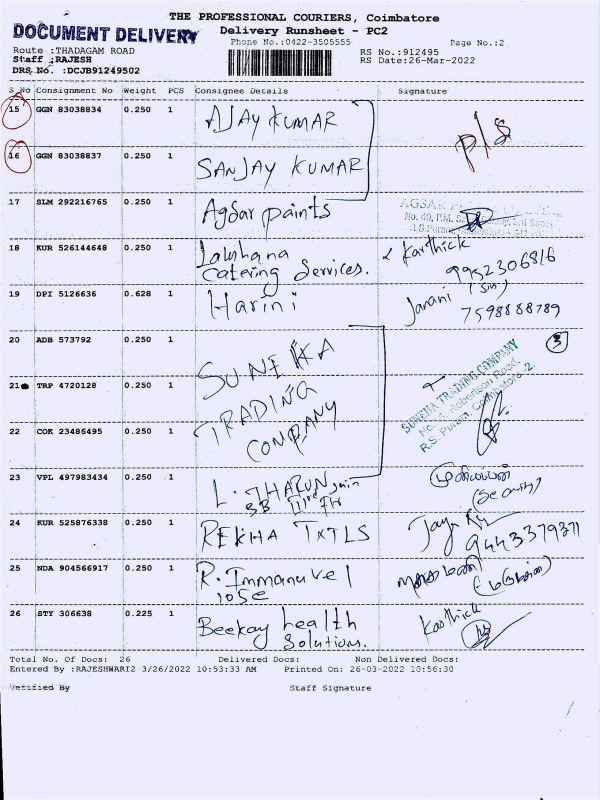 THE PROFESSIONAL COURIERS, Coimbatore
DOCUMENT DELIVERY
Delivery Runsheet - PC2
Phone No.:0422-3505555
Page No.:2
Route :THADAGAM ROAD
RS No.:912495
Staff :RAJESH
RS Date:26-Mar-2022
DRS No. :DCJB91249502
S No Consignment No Weight PCS Consignee Details Signature
15 GGN 83038834 0.250 1 AJAY KUMAR
P/S
16 GGN 83038837 0.250 1 SANJAY KUMAR
17 SLM 292216765 0.250 1 Agsar paints
No. 40, P.M.
18 KUR 526144648 0.250 1 Lakshana Karthick
Catering Services. 9952306816
19 DPI 5126636 0.628 1 Harini Janani
7598888789
20 ADB 573792 0.250 1 SUNEHA
3
21 TRP 4720128 0.250 1 TRADING
SUNEHA TRADING COMPANY
Robertson Road,
R.S. Puram, Coimbatore-2.
22 COK 23486495 0.250 1 COMPANY
23 VPL 497983434 0.250 1 L. THARUN Jain முனியப்பன்
3B IIIrd Flr (Security)
24 KUR 525876338 0.250 1 REKHA TXTLS Jaya
9443379371
25 NDA 904566917 0.250 1 R. Immanuvel
Jose
26 STY 306638 0.225 1 Beekay health Karthick
Solutions.
Total No. Of Docs: 26 Delivered Docs: Non Delivered Docs:
Entered By :RAJESHWARI2 3/26/2022 10:53:33 AM Printed On: 26-03-2022 10:56:30
Verified By Staff Signature